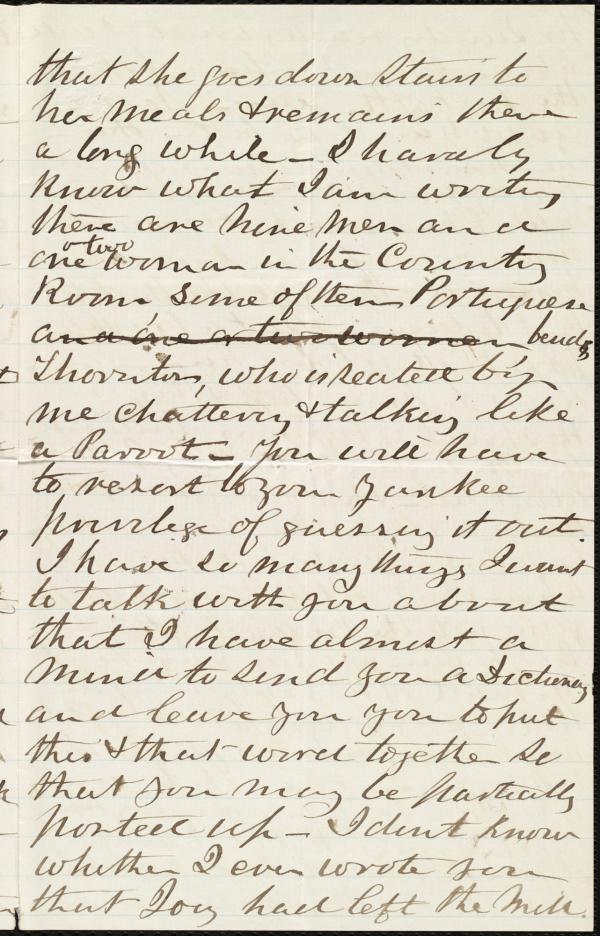 that she goes down Stairs to
her meals & remains there
a long while _ I hardly
know what I am writing
there are nine men and a
one or two woman in the Counting
Room some of them Portuguese
and one or two women besides
Thornton, who is seated by
me chattering & talking like
a Parrot _ You will have
to resort to your Yankee
privilege of guessing it out.
I have so many things I want
to talk with you about
that I have almost a
mind to send you a Dictionary
and leave you you to put
this & that word together so
that you may be partially
posted up _ I dont know
whether I ever wrote you
that Joy had left the Mill.